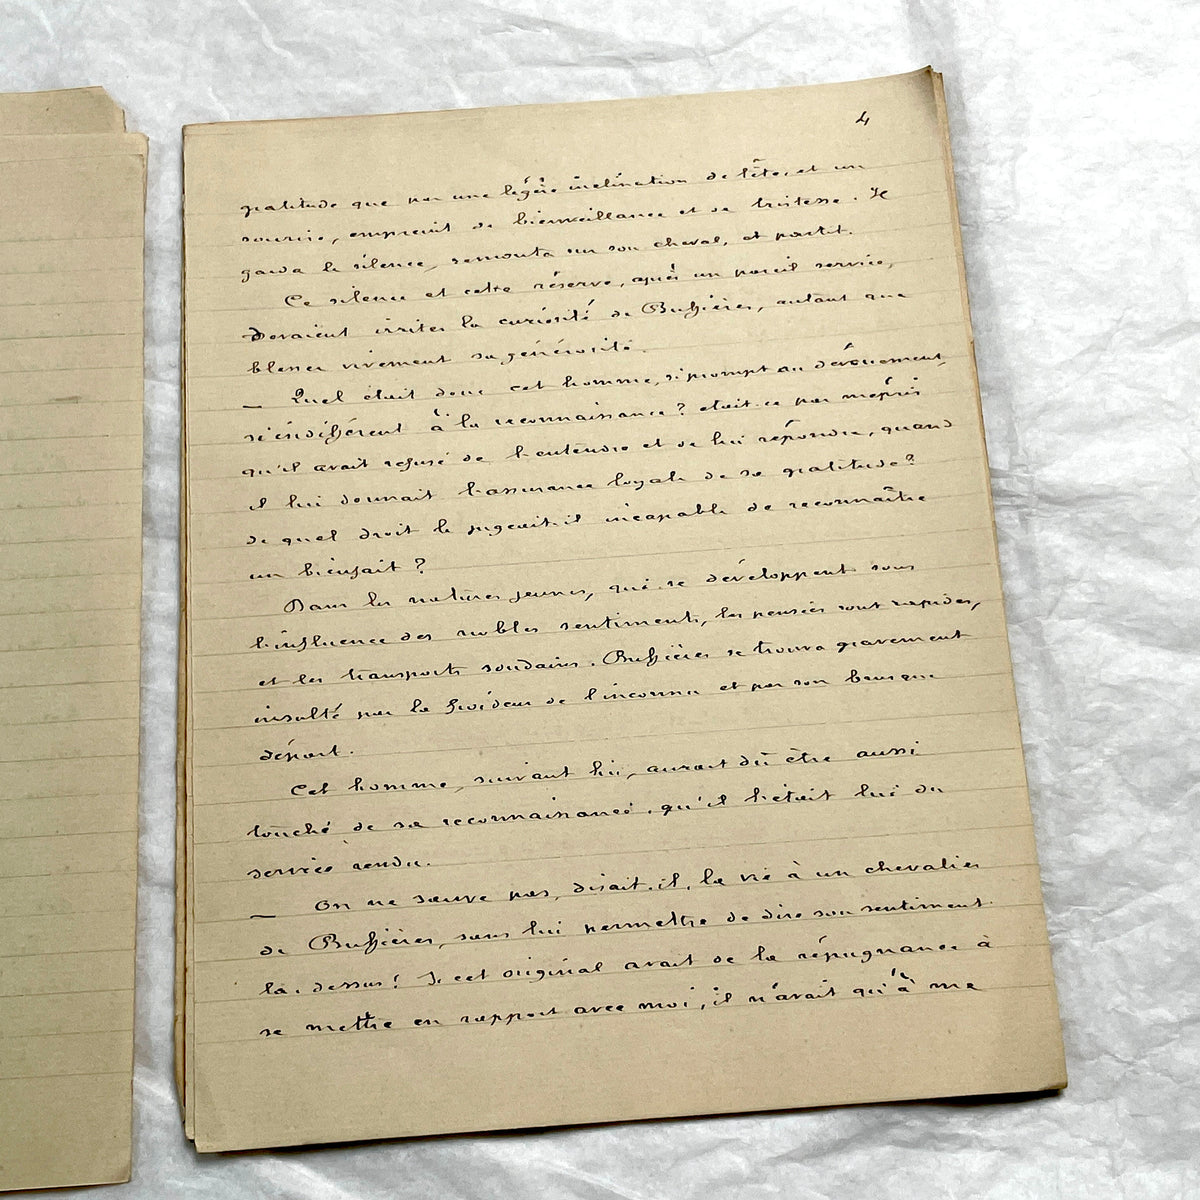 4
gratitude que par une légère inclination de tête, et un
sourire, empreint de bienveillance et de tristesse. Il
garda le silence, remonta sur son cheval, et partit.
Ce silence et cette réserve, après un pareil service,
devaient irriter la curiosité de Bussières, autant que
blesser vivement sa générosité.
— Quel était donc cet homme, si prompt au dévouement,
si indifférent à la reconnaissance? était-ce par mépris
qu'il avait refusé de l'entendre et de lui répondre, quand
il lui donnait l'assurance loyale de sa gratitude?
de quel droit le jugeait-il incapable de reconnaître
un bienfait?
Dans les natures jeunes, qui se développent sous
l'influence des nobles sentiments, les pensées sont rapides,
et les transports soudains. Bussières se trouva gravement
insulté par la froideur de l'inconnu et par son brusque
départ.
Cet homme, suivant lui, aurait dû être aussi
touché de sa reconnaissance, qu'il l'était lui du
service rendu.
— On ne sauve pas, disait-il, la vie à un chevalier
de Bussières, sans lui permettre de dire son sentiment
là-dessus! Si cet original avait de la répugnance à
se mettre en rapport avec moi, il n'avait qu'à me